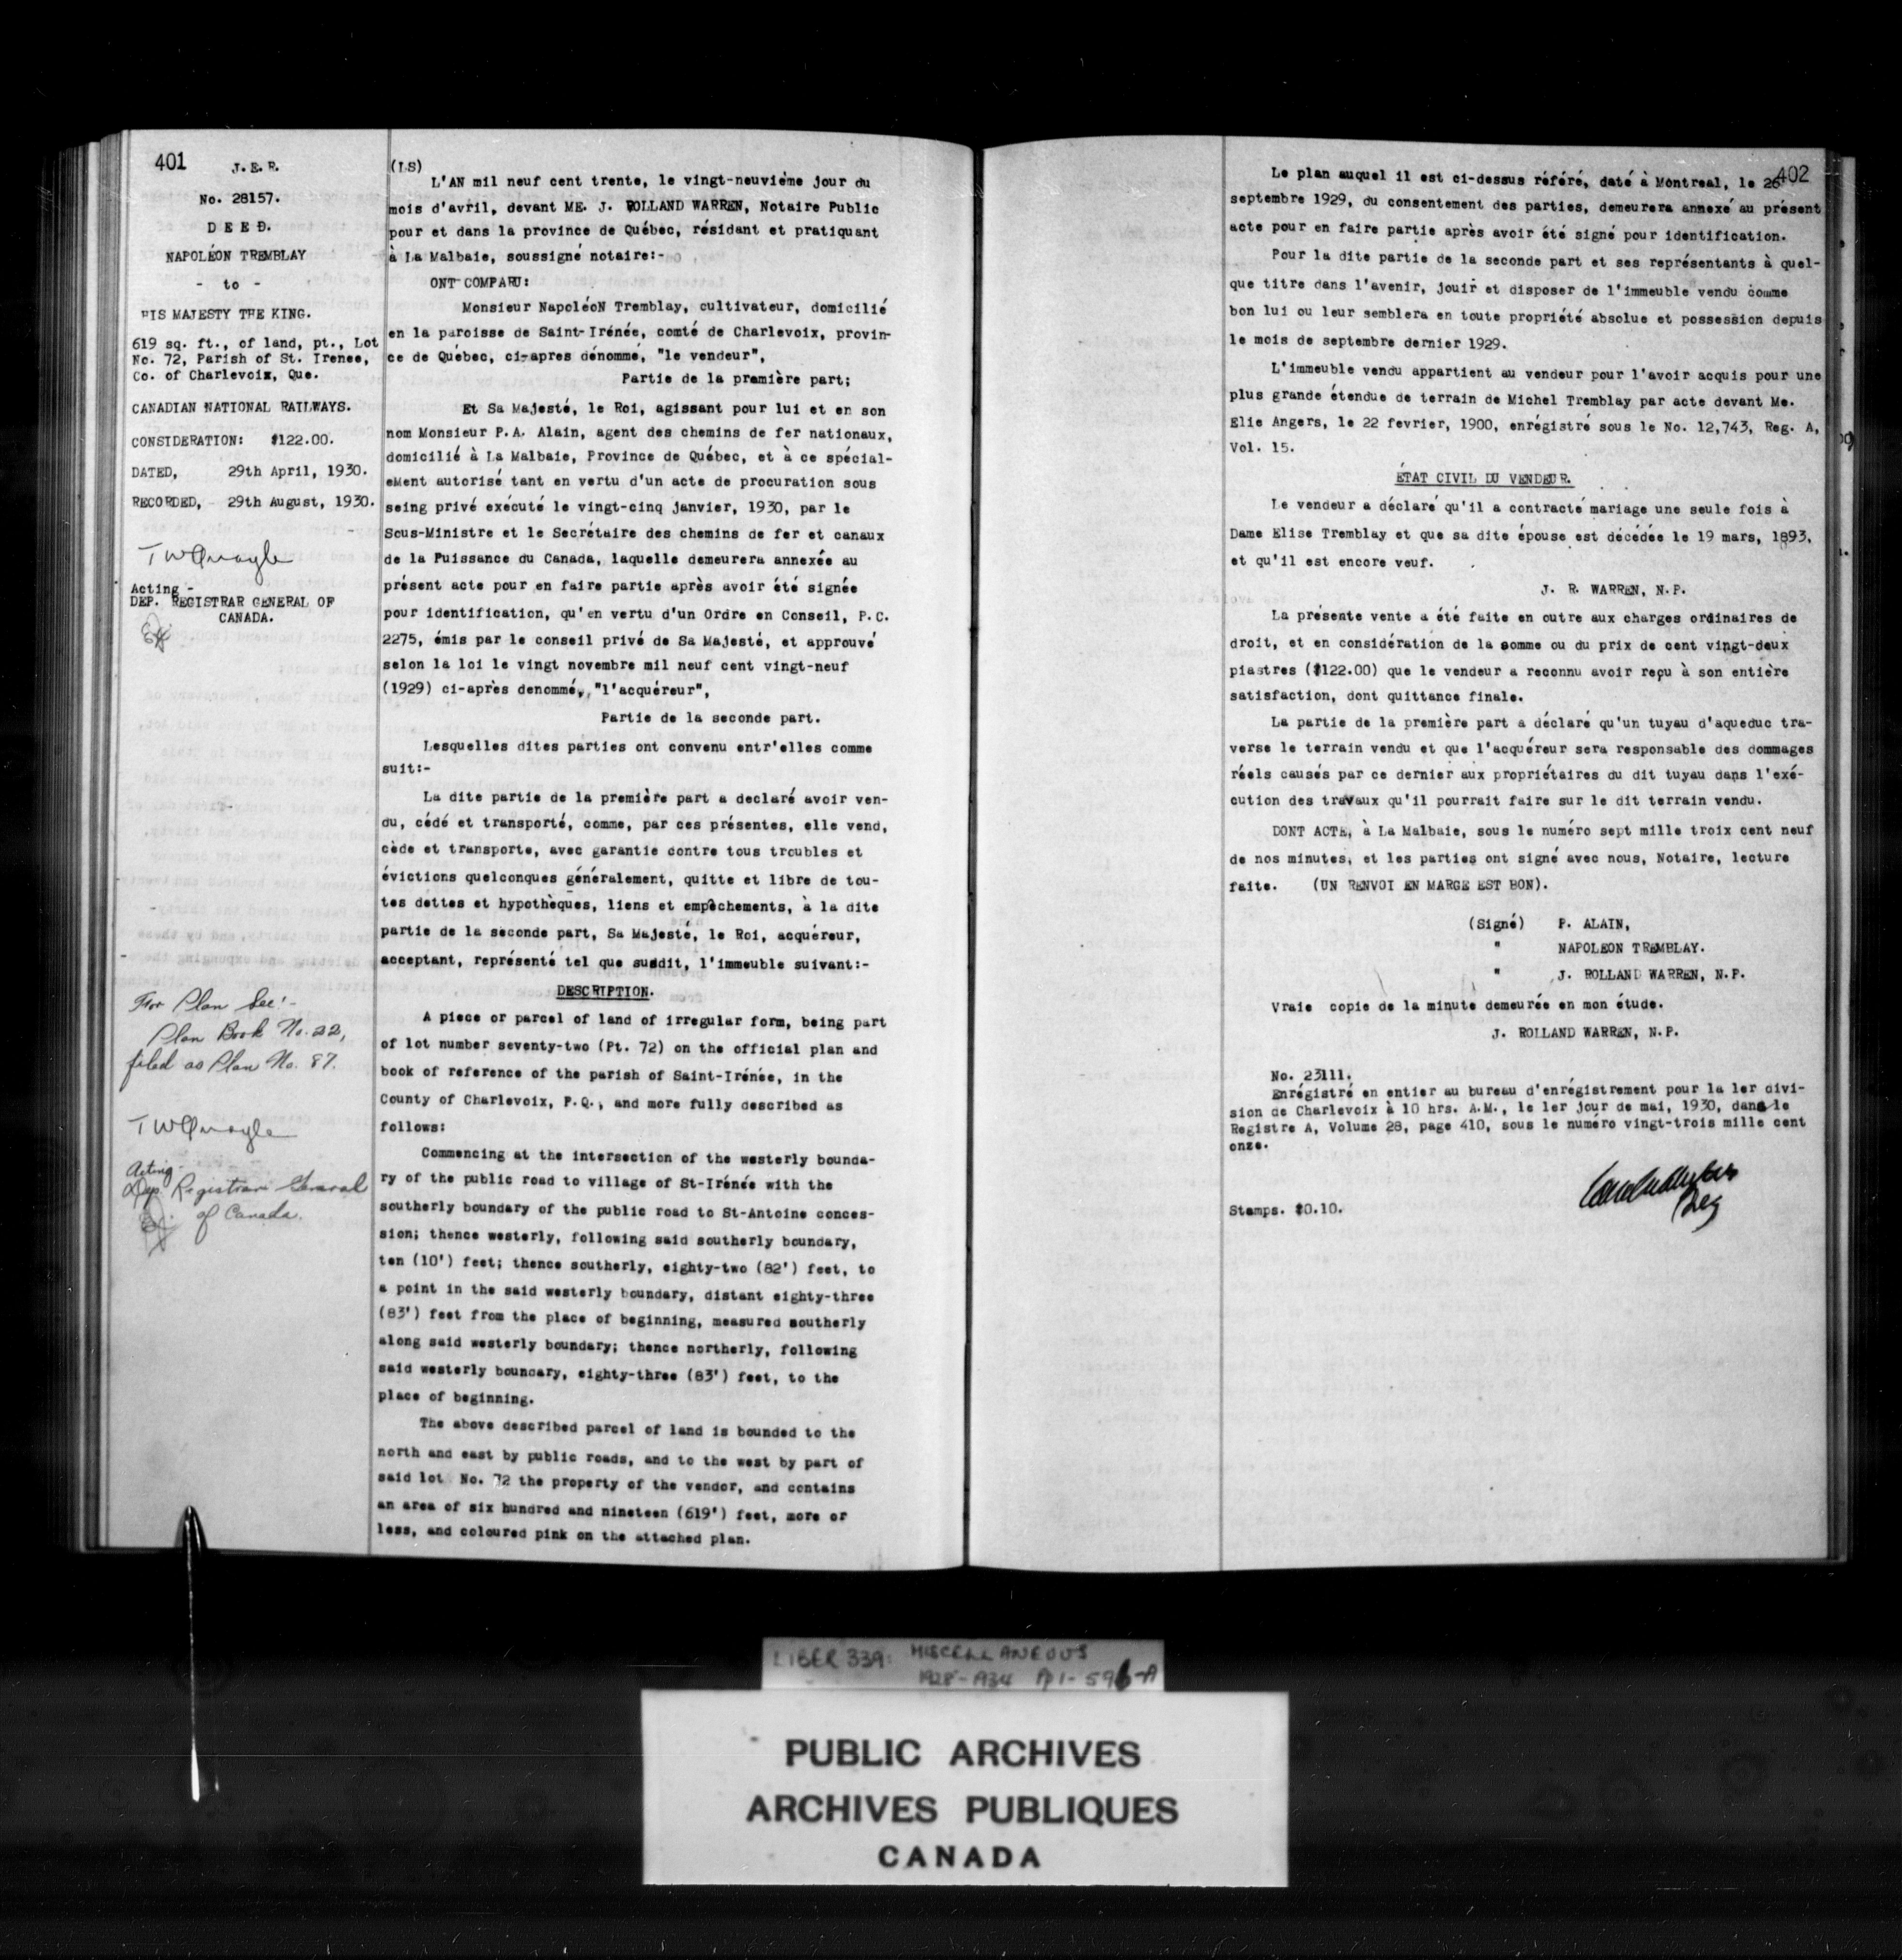 401
J. E. R.
No. 28157.
D E E D.
NAPOLÉON TREMBLAY
- to -
HIS MAJESTY THE KING.
619 sq. ft., of land, pt., Lot
No. 72, Parish of St. Irenee,
Co. of Charlevoix, Que.
CANADIAN NATIONAL RAILWAYS.
CONSIDERATION: $122.00.
DATED, 29th April, 1930.
RECORDED, 29th August, 1930.
Acting -
DEP. REGISTRAR GENERAL OF
CANADA.
For Plan See:-
Plan Book No. 22,
filed as Plan No. 87.
Acting-
Dep. Registrar General
of Canada.
(LS)
L'AN mil neuf cent trente, le vingt-neuvième jour du
mois d'avril, devant ME. J. ROLLAND WARREN, Notaire Public
pour et dans la province de Québec, résidant et pratiquant
à La Malbaie, soussigné notaire:-
ONT COMPARU:
Monsieur NapoléoN Tremblay, cultivateur, domicilié
en la paroisse de Saint-Irénée, comté de Charlevoix, provin-
ce de Québec, ci-apres dénommé, "le vendeur",
Partie de la première part;
Et Sa Majesté, le Roi, agissant pour lui et en son
nom Monsieur P.A. Alain, agent des chemins de fer nationaux,
domicilié à La Malbaie, Province de Québec, et à ce spécial-
eMent autorisé tant en vertu d'un acte de procuration sous
seing privé exécuté le vingt-cinq janvier, 1930, par le
Sous-Ministre et le Secrétaire des chemins de fer et canaux
de la Puissance du Canada, laquelle demeurera annexée au
présent acte pour en faire partie après avoir été signée
pour identification, qu'en vertu d'un Ordre en Conseil, P.C.
2275, émis par le conseil privé de Sa Majesté, et approuvé
selon la loi le vingt novembre mil neuf cent vingt-neuf
(1929) ci-après denommé, "l'acquéreur",
Partie de la seconde part.
Lesquelles dites parties ont convenu entr'elles comme
suit:-
La dite partie de la première part a declaré avoir ven-
du, cédé et transporté, comme, par ces présentes, elle vend,
cède et transporte, avec garantie contre tous troubles et
évictions quelconques généralement, quitte et libre de tou-
tes dettes et hypothèques, liens et empêchements, à la dite
partie de la seconde part, Sa Majesté, le Roi, acquéreur,
acceptant, représenté tel que susdit, l'immeuble suivant:-
DESCRIPTION.
A piece or parcel of land of irregular form, being part
of lot number seventy-two (Pt. 72) on the official plan and
book of reference of the parish of Saint-Irénée, in the
County of Charlevoix, P.Q., and more fully described as
follows:
Commencing at the intersection of the westerly bounda-
ry of the public road to village of St-Irénée with the
southerly boundary of the public road to St-Antoine conces-
sion; thence westerly, following said southerly boundary,
ten (10') feet; thence southerly, eighty-two (82') feet, to
a point in the said westerly boundary, distant eighty-three
(83') feet from the place of beginning, measured southerly
along said westerly boundary; thence northerly, following
said westerly boundary, eighty-three (83') feet, to the
place of beginning.
The above described parcel of land is bounded to the
north and east by public roads, and to the west by part of
said lot No. 72 the property of the vendor, and contains
an area of six hundred and nineteen (619') feet, more or
less, and coloured pink on the attached plan.
402
Le plan auquel il est ci-dessus référé, daté à Montreal, le 26
septembre 1929, du consentement des parties, demeurera annexé au présent
acte pour en faire partie après avoir été signé pour identification.
Pour la dite partie de la seconde part et ses représentants à quel-
que titre dans l'avenir, jouir et disposer de l'immeuble vendu comme
bon lui ou leur semblera en toute propriété absolue et possession depuis
le mois de septembre dernier 1929.
L'immeuble vendu appartient au vendeur pour l'avoir acquis pour une
plus grande étendue de terrain de Michel Tremblay par acte devant Me.
Elie Angers, le 22 fevrier, 1900, enrégistré sous le No. 12,743, Reg. A,
Vol. 15.
ÉTAT CIVIL DU VENDEUR.
Le vendeur a déclaré qu'il a contracté mariage une seule fois à
Dame Elise Tremblay et que sa dite épouse est décédée le 19 mars, 1893,
et qu'il est encore veuf.
J. R. WARREN, N.P.
La présente vente a été faite en outre aux charges ordinaires de
droit, et en considération de la somme ou du prix de cent vingt-deux
piastres ($122.00) que le vendeur a reconnu avoir reçu à son entière
satisfaction, dont quittance finale.
La partie de la première part a déclaré qu'un tuyau d'aqueduc tra-
verse le terrain vendu et que l'acquéreur sera responsable des dommages
réels causés par ce dernier aux propriétaires du dit tuyau dans l'exé-
cution des travaux qu'il pourrait faire sur le dit terrain vendu.
DONT ACTE, à La Malbaie, sous le numéro sept mille troix cent neuf
de nos minutes, et les parties ont signé avec nous, Notaire, lecture
faite. (UN RENVOI EN MARGE EST BON).
(Signé) P. ALAIN,
" NAPOLEON TREMBLAY.
" J. ROLLAND WARREN, N.P.
Vraie copie de la minute demeurée en mon étude.
J. ROLLAND WARREN, N.P.
No. 23111.
Enrégistré en entier au bureau d'enrégistrement pour la 1er divi-
sion de Charlevoix à 10 hrs. A.M., le 1er jour de mai, 1930, dans le
Registre A, Volume 28, page 410, sous le numéro vingt-trois mille cent
onze.
Reg
Stamps. $0.10.
LIBER 339: MISCELLANEOUS
1928-1934 Pp 1-596-A
PUBLIC ARCHIVES
ARCHIVES PUBLIQUES
CANADA